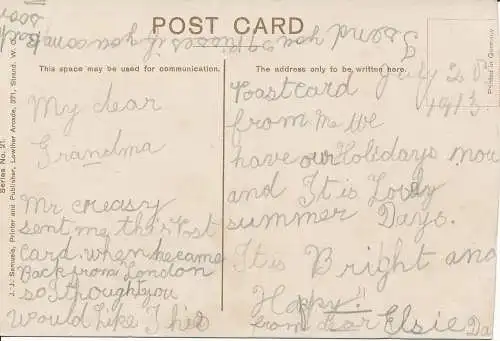 POST CARD
I send you 9 Kisses if you come Back soon
This space may be used for communication.
The address only to be written here.
Printed in Germany
Series No. 21.
J.-J. Samuels, Printer and Publisher, Lowther Arcade, 371, Strand. W.
My dear
Grandma
Mr creasy
sent me this Post
card. when he came
Back from London
so I thought you
Would Like I his
July 28
1913
Postcard
from Me We
have our Holidays now
and It is Lovely
summer Days.
It is Bright and
Happy!!
from Dear Elsie Da